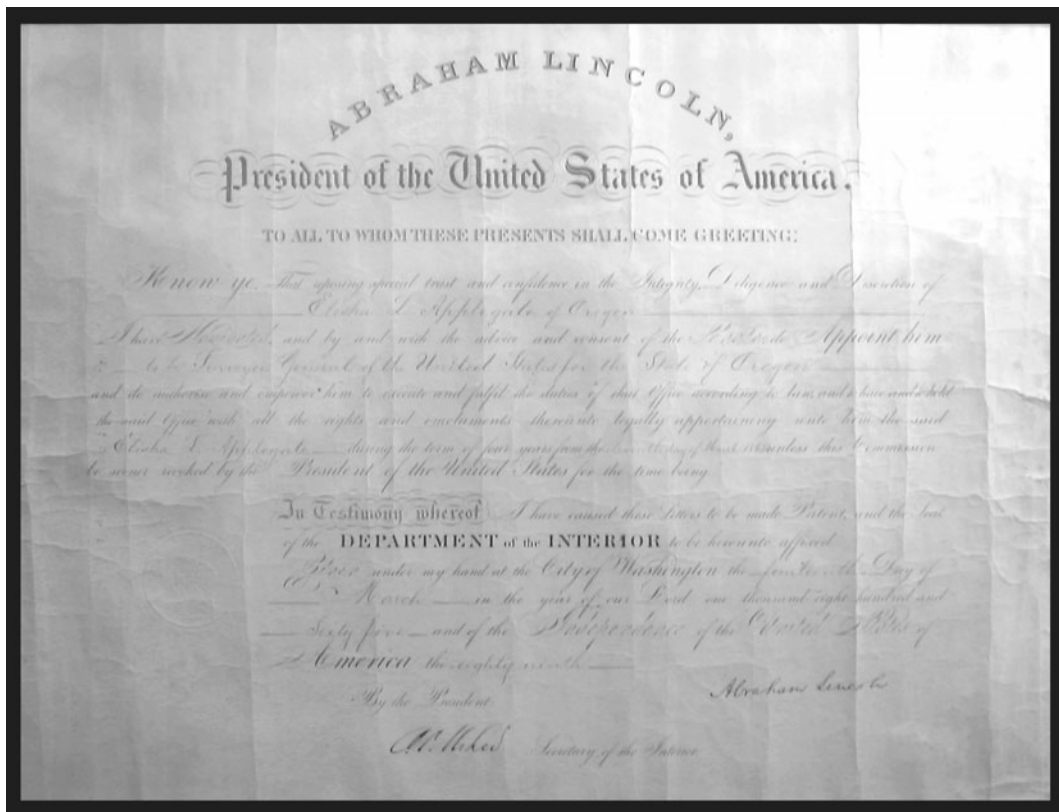 ABRAHAM LINCOLN,
President of the United States of America.
TO ALL TO WHOM THESE PRESENTS SHALL COME GREETING:
Know ye. That reposing special trust and confidence in the Integrity, Diligence and Discretion of
Elisha L. Applegate of Oregon
I have Nominated, and by and with the advice and consent of the Senate do Appoint him
to be Surveyor General of the United States for the State of Oregon
and do authorize and empower him to execute and fulfil the duties of that Office according to law, and to have and to hold
the said Office with all the rights and emoluments thereunto legally appertaining unto him the said
Elisha L. Applegate during the term of four years from the day of March unless this Commission
be sooner revoked by the President of the United States for the time being.
In Testimony whereof I have caused these Letters to be made Patent, and the Seal
of the DEPARTMENT of the INTERIOR to be hereunto affixed
Given under my hand at the City of Washington the fourteenth Day of
March in the year of our Lord one thousand eight hundred and
Sixty five and of the Independence of the United States of
America the eighty ninth
By the President. Abraham Lincoln
Secretary of the Interior